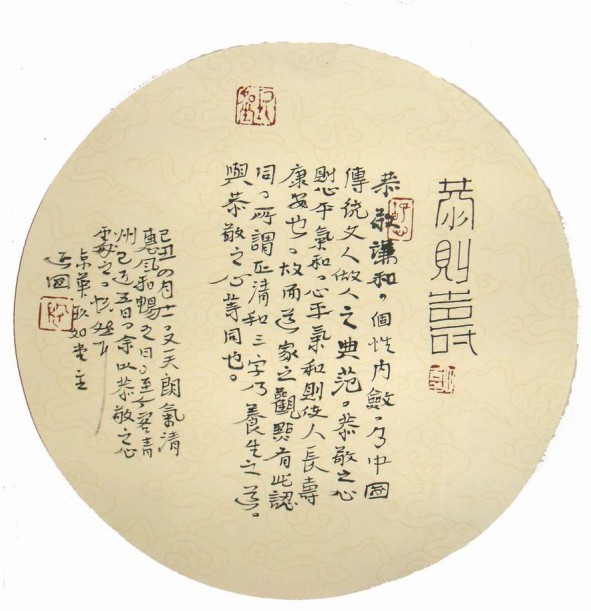 恭則壽
恭敬謙和。個性内斂。乃中國
傳統文人做人之典范。恭敬之心
則心平氣和。心平氣和則使人長壽
康安也。故而道家之觀點有此認
同。所謂正清和三字乃養生之道。
與恭敬之心等同也。
己丑四月 又天朗氣清
惠风和暢之日。至 客青
州已近五日。余以恭敬之心
之。
京華 如堂主